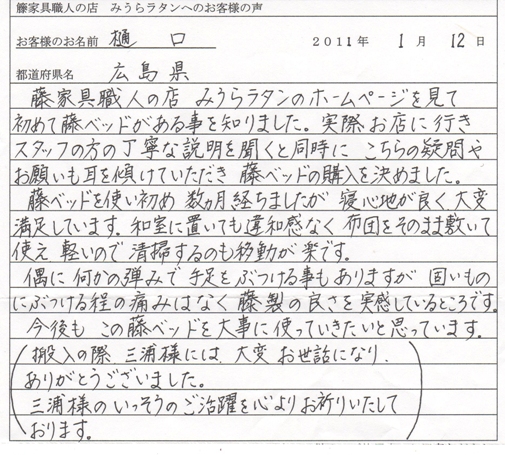 籐家具職人の店 みうらラタンへのお客様の声
お客様のお名前 樋口 2011年 1月 12日
都道府県名 広島県
藤家具職人の店 みうらラタンのホームページを見て
初めて藤ベッドがある事を知りました。実際お店に行き
スタッフの方の丁寧な説明を聞くと同時に こちらの疑問や
お願いも耳を傾けていただき 藤ベッドの購入を決めました。
藤ベッドを使い初め 数ヵ月経ちましたが 寝心地が良く大変
満足しています。和室に置いても違和感なく 布団をそのまま敷いて
使え 軽いので 清掃するのも移動が楽です。
偶に 何かの弾みで 手足をぶつける事もありますが 固いもの
にぶつける程の痛みはなく 藤製の良さを実感しているところです。
今後も この藤ベッドを大事に使っていきたいと思っています。
(搬入の際 三浦様には、大変 お世話になり、
ありがとうございました。
三浦様の いっそうのご活躍を心よりお祈りいたして
おります。)